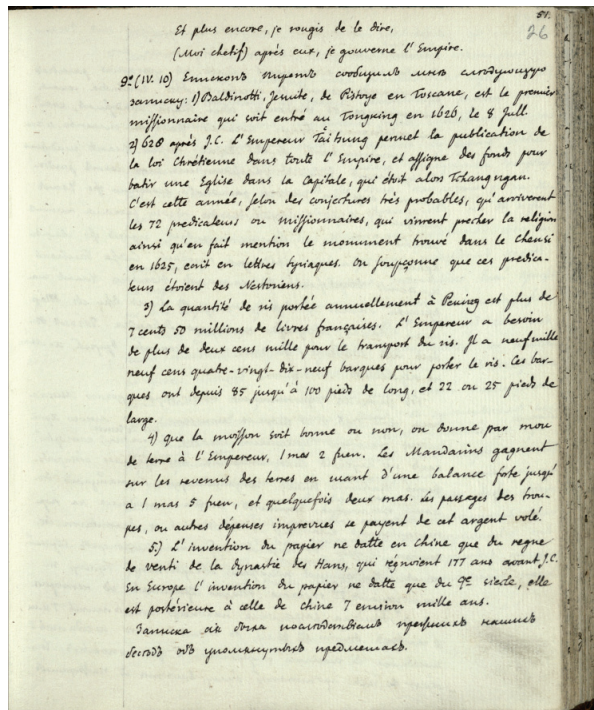 51.
26
Et plus encore, je rougis de le dire,
(Moi chetif) après eux, je gouverne l'Empire.
9.° (IV. 10) Епископъ Пиретъ сообщилъ мнѣ слѣдующую
записку: 1) Baldinotti, Jesuite, de Pistoye en Toscane, est le premier
missionnaire qui soit entré au Tongking en 1626, le 8 Jull.
2) 628 après J.C. L'Empereur Täitsung permet la publication de
la loi Chrétienne dans toute l'Empire, et assigne des fonds pour
batir une Eglise dans la Capitale, qui étoit alors Tchangngan.
C'est cette année, selon des conjectures très probables, qu'arriverent
les 72 predicateurs ou missionnaires, qui vinrent precher la religion
ainsi qu'en fait mention le monument trouvé dans le Chensi
en 1625, ecrit en lettres syriaques. On soupçonne que ces predica-
teurs étoient des Nestoriens.
3) La quantité de ris portée annuellement à Peking est plus de
7 cents 50 millions de livres françaises. L'Empereur a besoin
de plus de deux cens mille pour le transport du ris. Il a neuf mille
neuf cens quatre-vingt-dix-neuf barques pour porter le ris. Ces bar-
ques ont depuis 85 jusqu'à 100 pieds de long, et 22 ou 25 pieds de
large.
4) que la moisson soit bonne ou non, on donne par mou
de terre à l'Empereur, 1 mas 2 fuen. Les Mandarins gagnent
sur les revenus des terres en usant d'une balance forte jusqu'
a 1 mas 5 fuen, et quelquefois deux mas. Les passages des trou-
pes, ou autres dépenses imprevues se payent de cet argent volé.
5.) L'invention du papier ne datte en Chine que du regne
de venti de la dynastie des Hans, qui régnoient 177 ans avant J.C.
En Europe l'invention du papier ne datte que du 9e siecle, elle
est postérieure à celle de Chine 7 environ mille ans.
Записка сія была послѣдствіемъ прежнихъ нашихъ
бесѣдъ объ упомянутыхъ предметахъ.